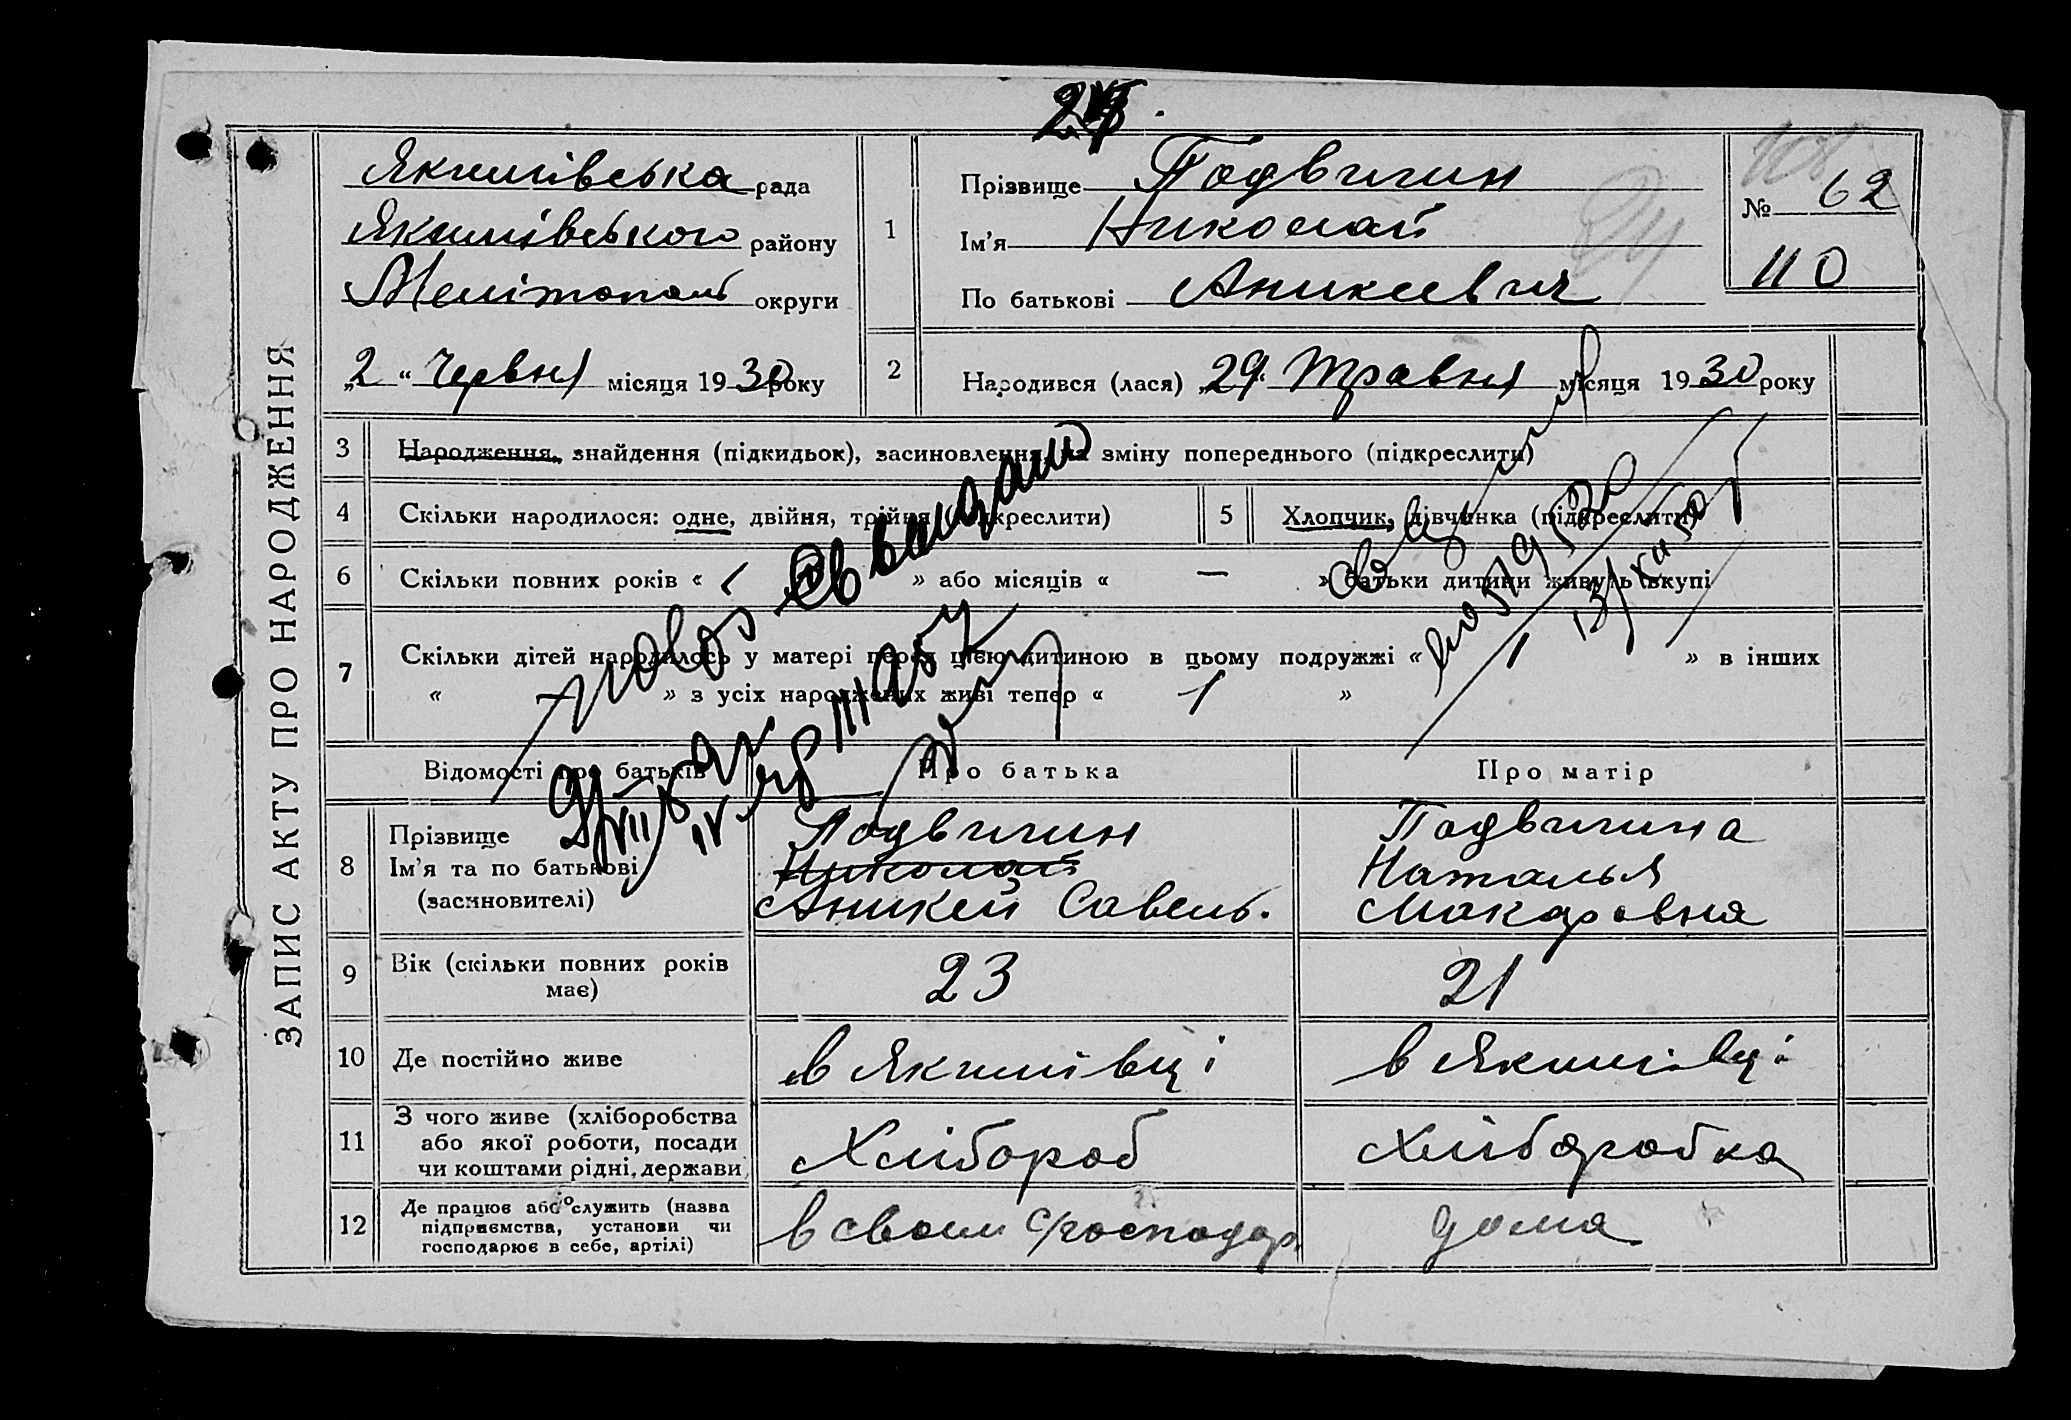 ЗАПИС АКТУ ПРО НАРОДЖЕННЯ
Якимівська рада
Якимівського району
Мелітополь округи
„2“ Червня місяця 1930 року
1
Прізвище Подвигин
Ім'я Николай
По батькові Аникеевич
№ 62
110
2
Народився (лася) „29“ Травня місяця 1930 року
3 Народження, знайдення (підкидьок), засиновлення, на зміну попереднього (підкреслити)
4 Скільки народилося: одне, двійня, трійня (підкреслити)
5 Хлопчик, дівчинка (підкреслити)
6 Скільки повних років « » або місяців « — » батьки дитини живуть вкупі
7 Скільки дітей народилось у матері перед цією дитиною в цьому подружжі « 1 » в інших
« — » з усіх народжених живі тепер « 1 »
Відомості про батьків Про батька Про матір
8 Прізвище
Ім'я та по батькові
(засиновителі)
Подвигин
Николай
Аникей Савель.
Подвигина
Наталья
Макаровна
9 Вік (скільки повних років має) 23 21
10 Де постійно живе в Якимівці в Якимівці
11 З чого живе (хліборобства
або якої роботи, посади
чи коштами рідні, держави
Хлібороб Хліборобка
12 Де працює або служить (назва
підприємства, установи чи
господарює в себе, артілі)
в своем с/господар. дома